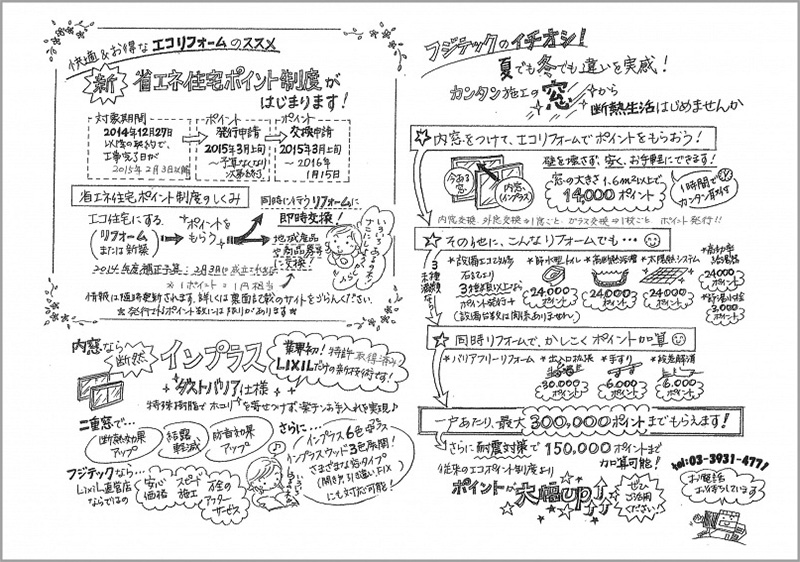 快適&お得な エコリフォームのススメ
新 省エネ住宅ポイント制度が
はじまります！
対象期間
2014年12月27日
以降の契約で、
工事完了日が
2015年2月3日以降
ポイント
発行申請
2015年3月上旬
～予算なくなり
次第終了
ポイント
交換申請
2015年3月上旬
～2016年
1月15日
省エネ住宅ポイント制度のしくみ
エコ住宅にする
(リフォーム
または新築)
ポイントを
もらう
同時に行うリフォームに
即時交換！
地域産品
や商品券等
に交換！
※1ポイント=1円相当
情報は随時更新されます。詳しくは裏面まで 等のサイトをごらんください。
※発行されるポイント数には限りがあります※
内窓なら
断然
インプラス
業界初！特許取得済み！
LIXILだけの新技術です！
ダストバリア仕様
特殊樹脂でホコリを寄せつけず、楽チンお手入れを実現♪
二重窓で…
断熱効果
アップ
結露
軽減
防音効果
アップ
さらに…
インプラス6色
インプラスウッド3色展開！
さまざまな窓タイプ
(開き、引違い、FIX)
にも対応可能！
フジテックなら…
LIXIL直営店
ならではの
安心
価格
スピード
施工
万全の
アフター
サービス
フジテックのイチオシ！
夏でも冬でも違いを実感！
カンタン施工の窓から
断熱生活はじめませんか
☆内窓をつけて、エコリフォームでポイントをもらおう！
今ある
窓
内窓
(インプラス)
壁を壊さず、安く、お手軽にできます！
窓の大きさ1.6㎡以上で
14,000ポイント
1時間で
カンタン取付
内窓交換・外窓交換⇒1窓ごと・ガラス交換⇒1枚ごと ポイント発行!!
☆その他に、こんなリフォームでも…
3種類なら
*設備エコ改修
3種類以上で
ポイント発行↓
(設備台数は関係ありません)
*節水型トイレ
24,000
ポイント
*高断熱浴槽
24,000
ポイント
*太陽熱システム
24,000
ポイント
*高効率
給湯機
24,000
ポイント
*節湯水栓
3,000
ポイント
☆同時リフォームで、かしこくポイント加算
*バリアフリーリフォーム
*出入口拡張
30,000
ポイント
*手すり
6,000
ポイント
*段差解消
6,000
ポイント
一戸あたり、最大300,000ポイントまでもらえます！
さらに耐震対策で150,000ポイントまで
加算可能！
従来のエコポイント制度より
ポイントが大幅up
ぜひ
ご活用
ください！
tel:03-3931-4771
お電話
お待ちしています